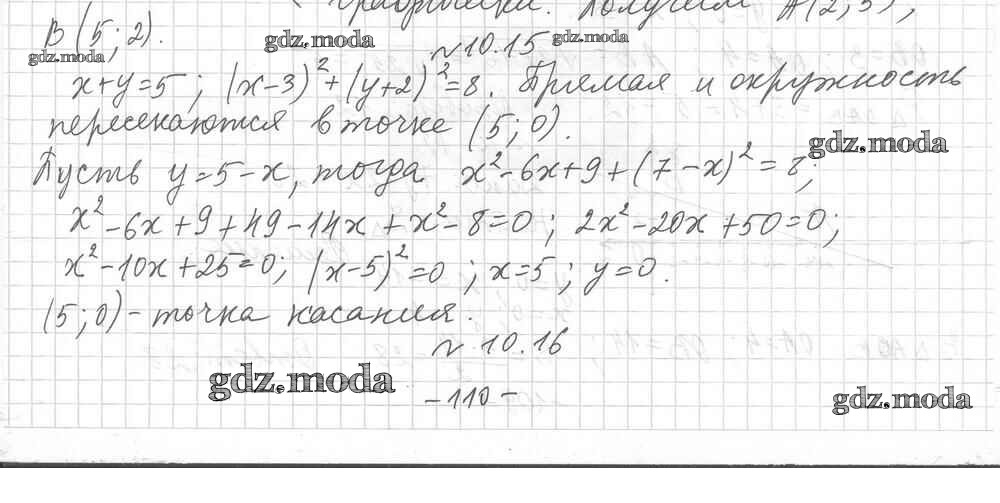 графически. Получим A(2;5),
B(5;2).
gdz.moda
gdz.moda
gdz.moda
№10.15
x+y=5; (x-3)²+(y+2)²=8. Прямая и окружность
пересекаются в точке (5;0).
gdz.moda
Пусть y=5-x, тогда x²-6x+9+(7-x)²=8;
x²-6x+9+49-14x+x²-8=0; 2x²-20x+50=0;
x²-10x+25=0; (x-5)²=0; x=5; y=0.
(5;0)-точка касания.
№10.16
gdz.moda
-110-
gdz.moda